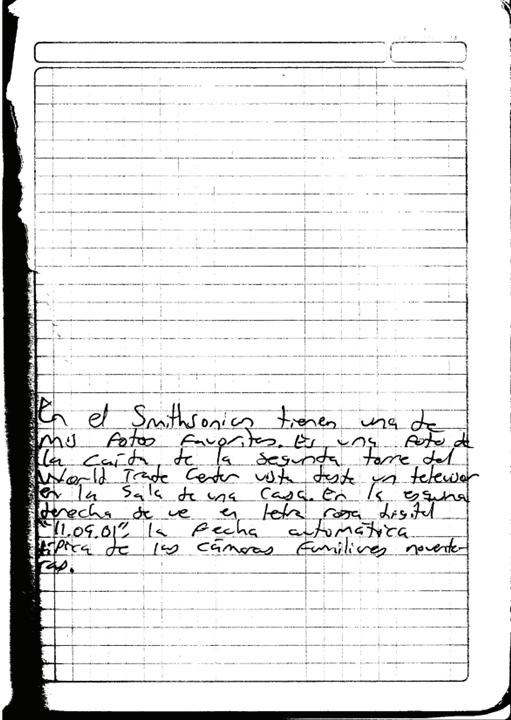 En el Smithsonian tienen una de
mis fotos favoritas. Es una foto de
la caída de la segunda torre del
World Trade Center vista desde un televisor
en la sala de una casa. En la esquina
derecha de ve en letra rosa digital
"11.09.01", la fecha automática
típica de las cámaras familiares novente-
ras.